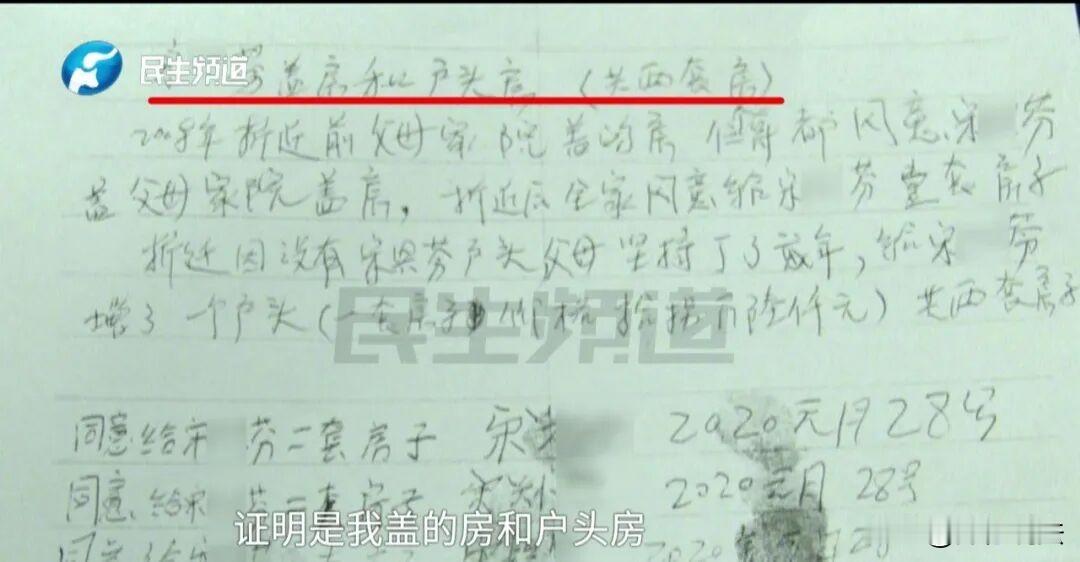 民生频道
盖房和户头房（共两套房）
2008年折迁前父母家院盖的房 都同意宋 芬
盖父母家院盖房，折迁后全家同意给宋 芬壹套房子
折迁因没有宋 芬户头父母坚持了3 年，给宋 芬
增了一个户头（一套房子 陆仟元）共两套房子
民生频道
同意给宋 芬二套房子 宋 2020元月28号
同意给宋 芬二套房子 宋 2020元月28号
证明是我盖的房和户头房
同意给宋 芬 房子 2020 月28